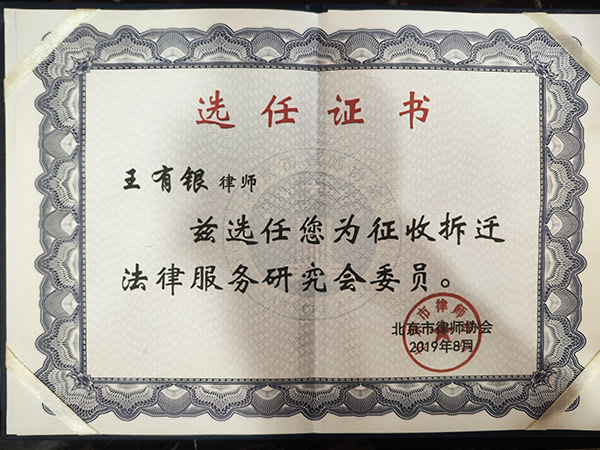 选任证书
王有银 律师
兹选任您为征收拆迁
法律服务研究会委员。
北京市律师协会
2019年8月